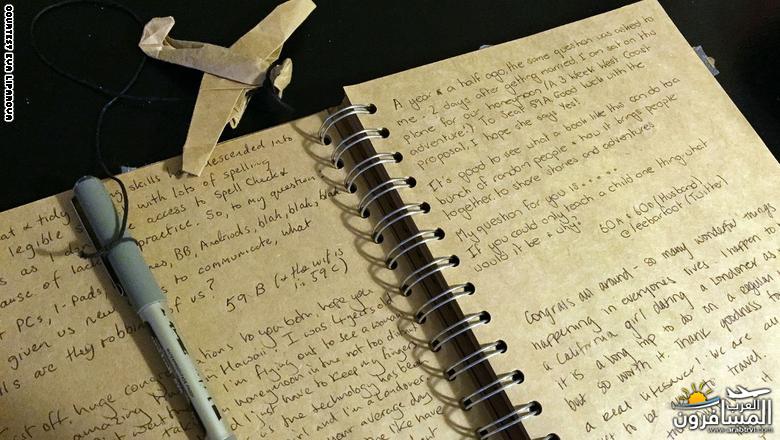 COURTESY EVA LIPARTOVA
at & tidy skills descended into
legible with lots of spelling
as access to Spell Check &
cause of lack practice. So, to my question
PCs, I-Pads, BB, Androids, blah, blah, blah
given us new to communicate, what
are they robbing of us?
59.B (& the wife is
in 59C)
off huge cong to you both, hope you
amazing Hawaii! I was 4 years old
I'm flying out to see a woman
honeymoon in the not too distant
have to keep my fingers
the technology has
and I'm a Londoner
your average day
like

A year & a half ago, the same question was asked to
me. 2 days after getting married, I am sat on this
plane for our honeymoon (A 3 week West Coast
adventure!) To Seat 59A Good luck with the
proposal, I hope she says Yes!
It's good to see what a book like this can do to a
bunch of random people - how it brings people
together to share stories and adventures
My question for you is.....
If you could only teach a child one thing, what
would it be & why?
60A & 60D (Husband)
@leeborfoot (Twitter)
Congrats all around - so many wonderful things
happening in everyones lives. I happen to
a California girl dating a Londoner so
it is a long trip to do on a regular
but so worth it. Thank goodness for
a seat upstairs! We are
travel.
العرب
المسافرون
www.arabtrvl.com